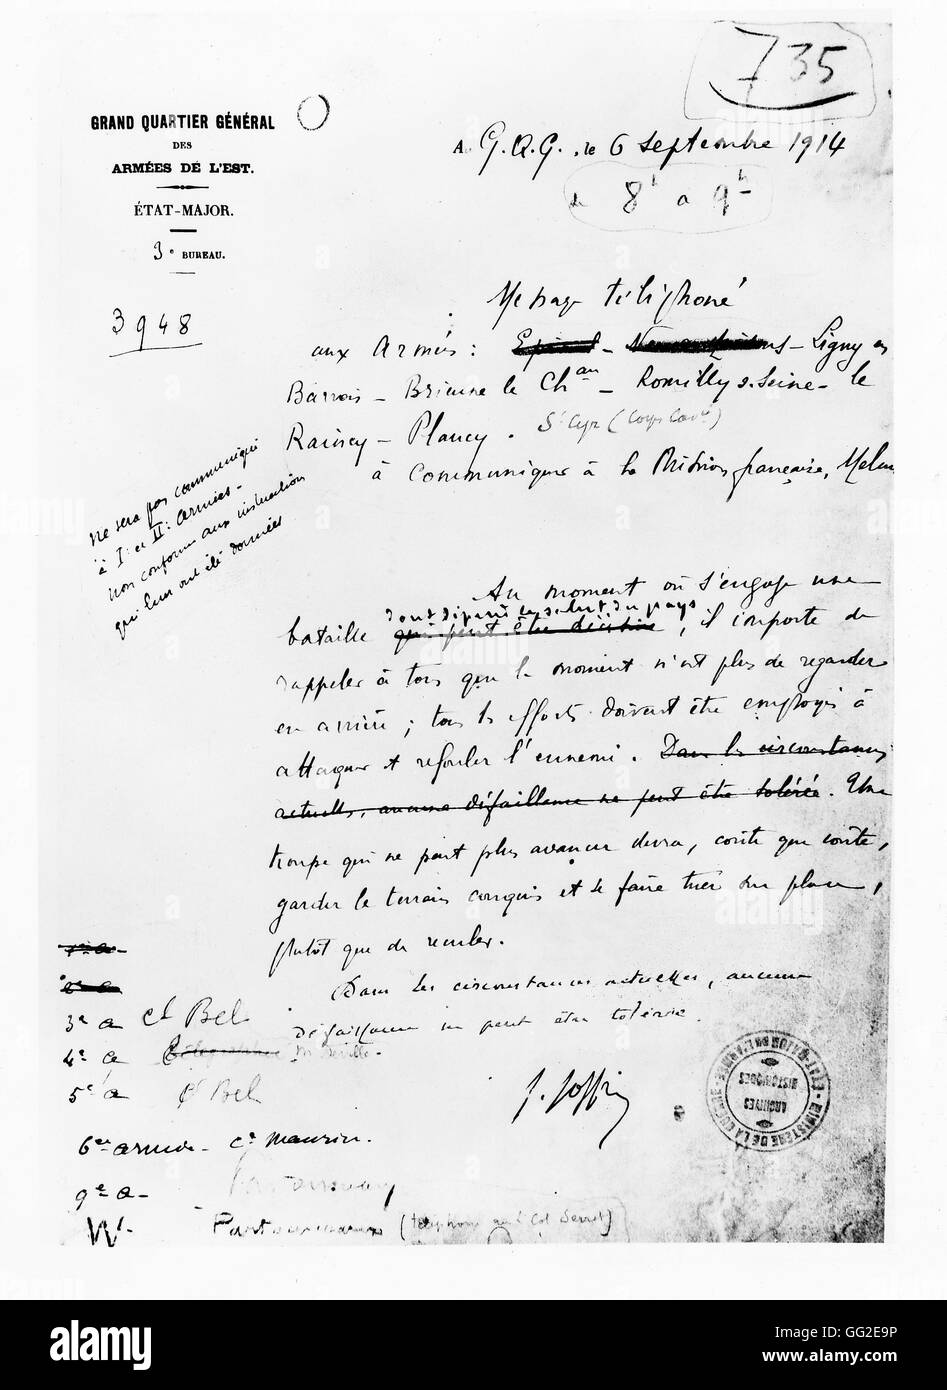 735
GRAND QUARTIER GÉNÉRAL
DES
ARMÉES DE L'EST.
ÉTAT-MAJOR.
3e BUREAU.
3948
A G.Q.G., le 6 Septembre 1914
de 8h à 9h
Message téléphoné
aux Armées : Epinal - - Ligny en
Barrois - Brienne le Chau - Romilly s. Seine - le
Raincy - Plancy. St Cyr (Corps Cavie)
à communiquer à la Mission française, Melun
ne sera pas communiqué
à I e et II e armées -
non conforme aux instructions
qui leur ont été données
Au moment où s'engage une
dont dépend le salut du pays
bataille qui peut être décisive, il importe de
rappeler à tous que le moment n'est plus de regarder
en arrière ; tous les efforts doivent être employés à
attaquer et refouler l'ennemi. Dans les circonstances
actuelles, aucune défaillance ne peut être tolérée. Une
troupe qui ne peut plus avancer devra, coûte que coûte,
garder le terrain conquis et se faire tuer sur place,
plutôt que de reculer.
Dans les circonstances actuelles, aucune
défaillance ne peut être tolérée.
J. Joffre
1re a -
2e a
3e a Ct Bel
4e a
5e a Ct Bel
6e armée - Ce Maurin.
9e a -
W - (téléphoné au Col Serret)
MINISTÈRE DE LA GUERRE ETAT-MAJOR DE L'ARMÉE
ARCHIVES
HISTORIQUES
alamy
a
alamy
Image ID: GG2E9P
www.alamy.com